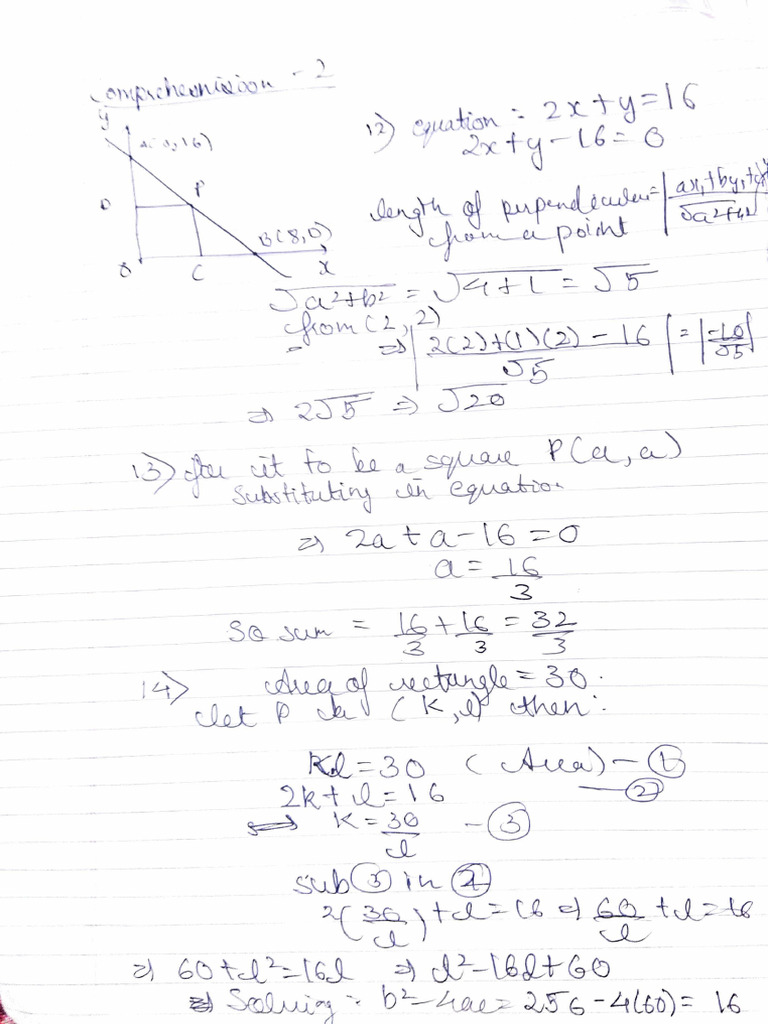 Comprehension - 2
y
A(0,16)
D
P
B(8,0)
O
C
x
12) equation : 2x+y=16
2x+y-16=0
length of perpendicular = |ax₁+by₁+c
from a point √a²+b²|
√a²+b² = √4+1 = √5
from (2,2)
⇒ |2(2)+(1)(2)-16 / √5| = |-10/√5|
⇒ 2√5 ⇒ √20
13) for it to be a square P(a,a)
substituting in equation
⇒ 2a+a-16=0
a = 16/3
So sum = 16/3 + 16/3 = 32/3
14) Area of rectangle = 30.
let P be (k,l) then:
kl=30 (Area) - ①
2k+l=16 - ②
⇒ k = 30/l - ③
sub ③ in ②
2(30/l)+l=16 ⇒ 60/l + l = 16
⇒ 60+l²=16l ⇒ l²-16l+60
⇒ Solving : b²-4ac = 256-4(60) = 16